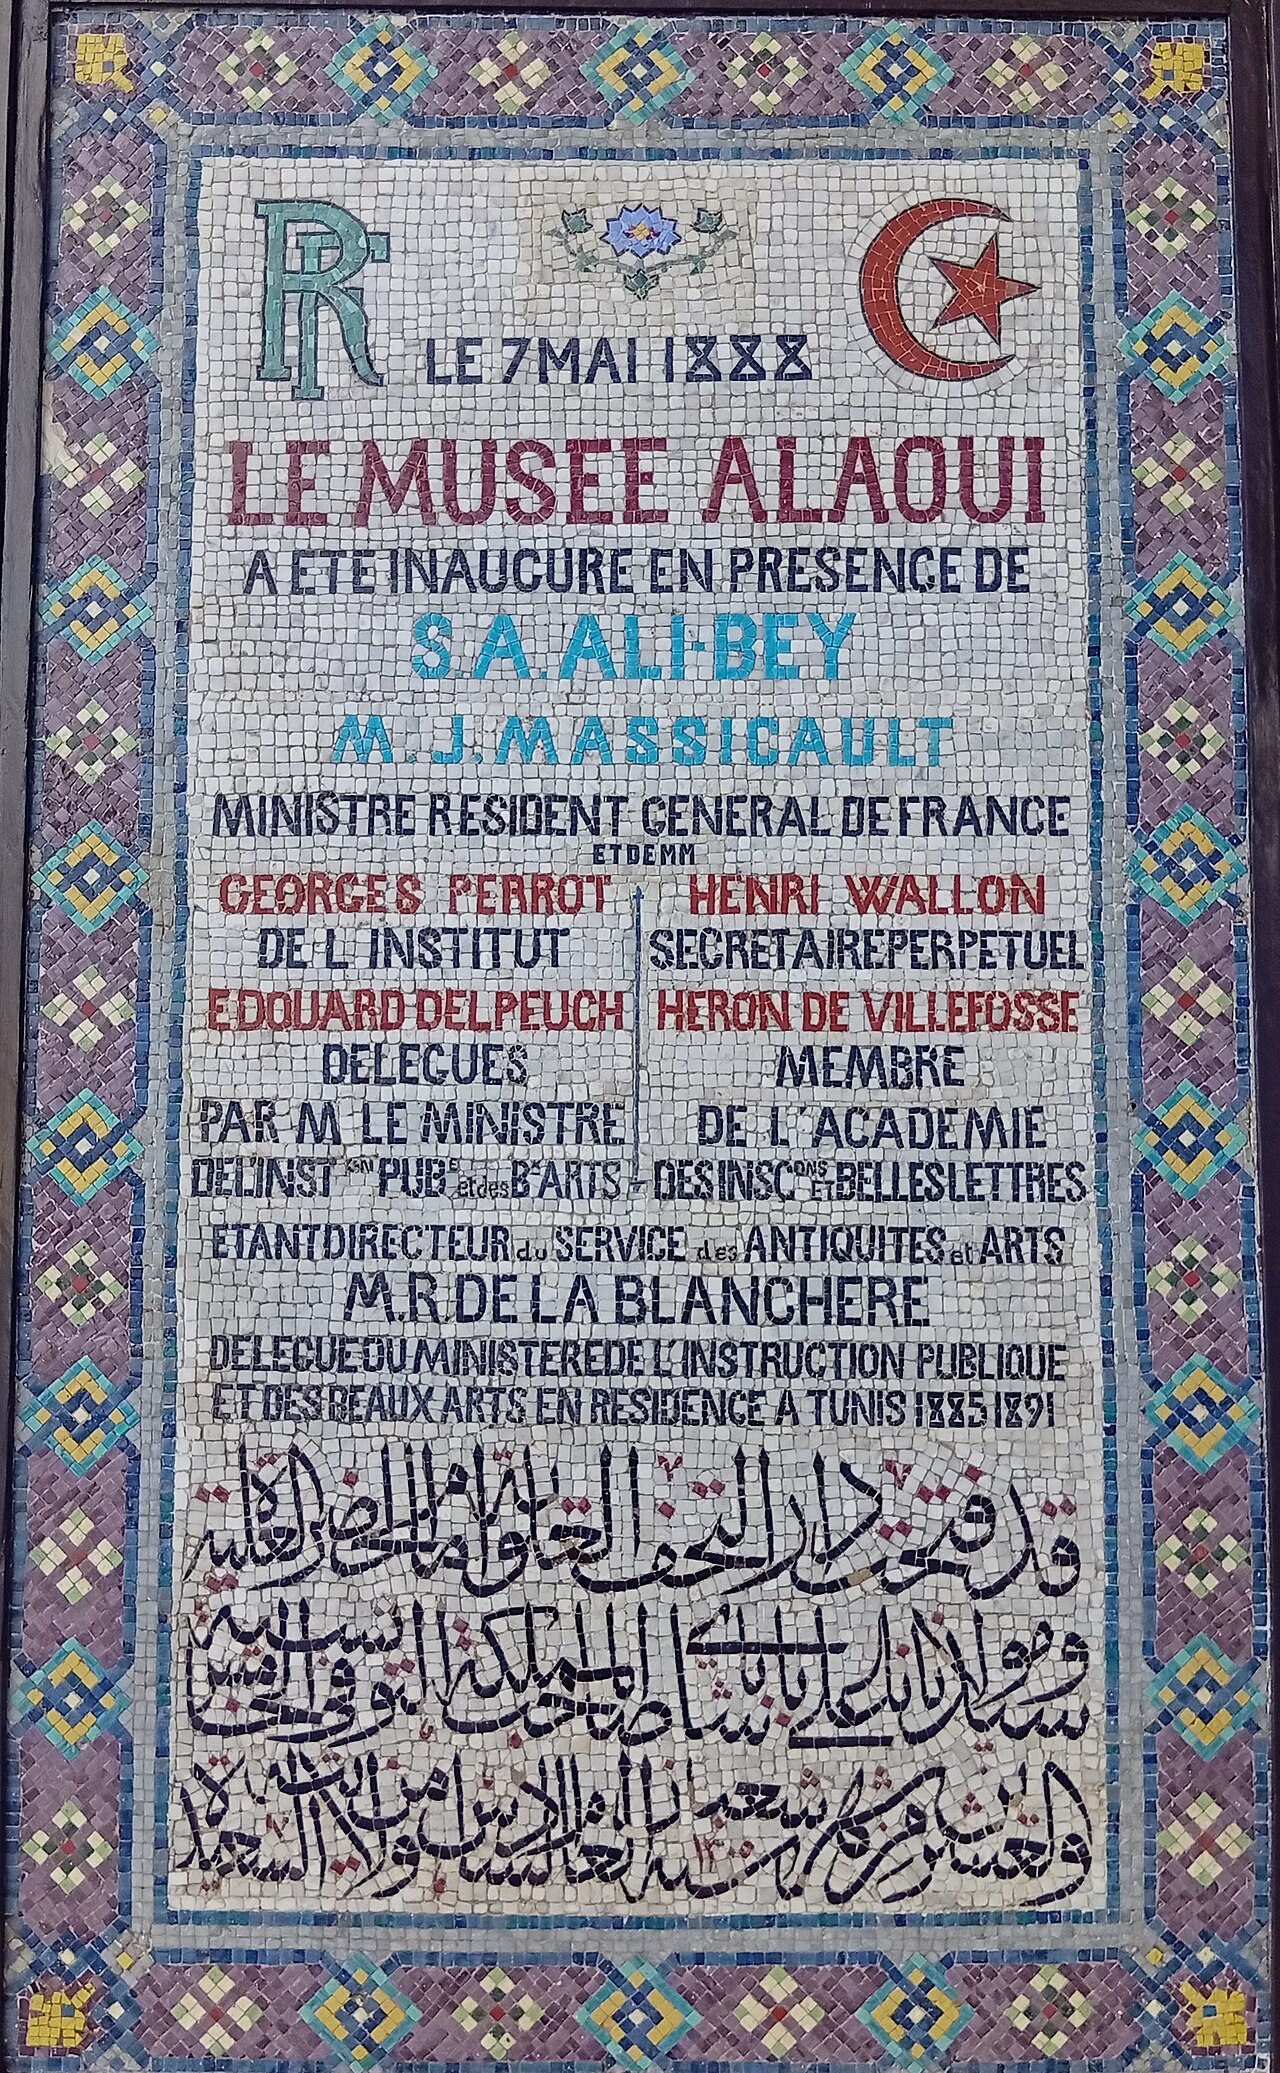 RF
LE 7 MAI 1888
LE MUSEE ALAOUI
A ETE INAUGURE EN PRESENCE DE
S.A. ALI-BEY
M. J. MASSICAULT
MINISTRE RESIDENT GENERAL DE FRANCE
ET DE MM
GEORGES PERROT
DE L INSTITUT
EDOUARD DELPEUCH
DELEGUES
PAR M LE MINISTRE
DE L'INST ON PUB E et des B X ARTS
HENRI WALLON
SECRETAIRE PERPETUEL
HERON DE VILLEFOSSE
MEMBRE
DE L'ACADEMIE
DES INSC ONS ET BELLES LETTRES
ETANT DIRECTEUR du SERVICE des ANTIQUITES et ARTS
M.R. DE LA BLANCHERE
DELEGUE DU MINISTERE DE L'INSTRUCTION PUBLIQUE
ET DES BEAUX ARTS EN RESIDENCE A TUNIS 1885 1891
قد فتحت دار التحف العلوية العلية
ومولانا صاحب المملكة التونسية وفي الخامس
والعشرين من